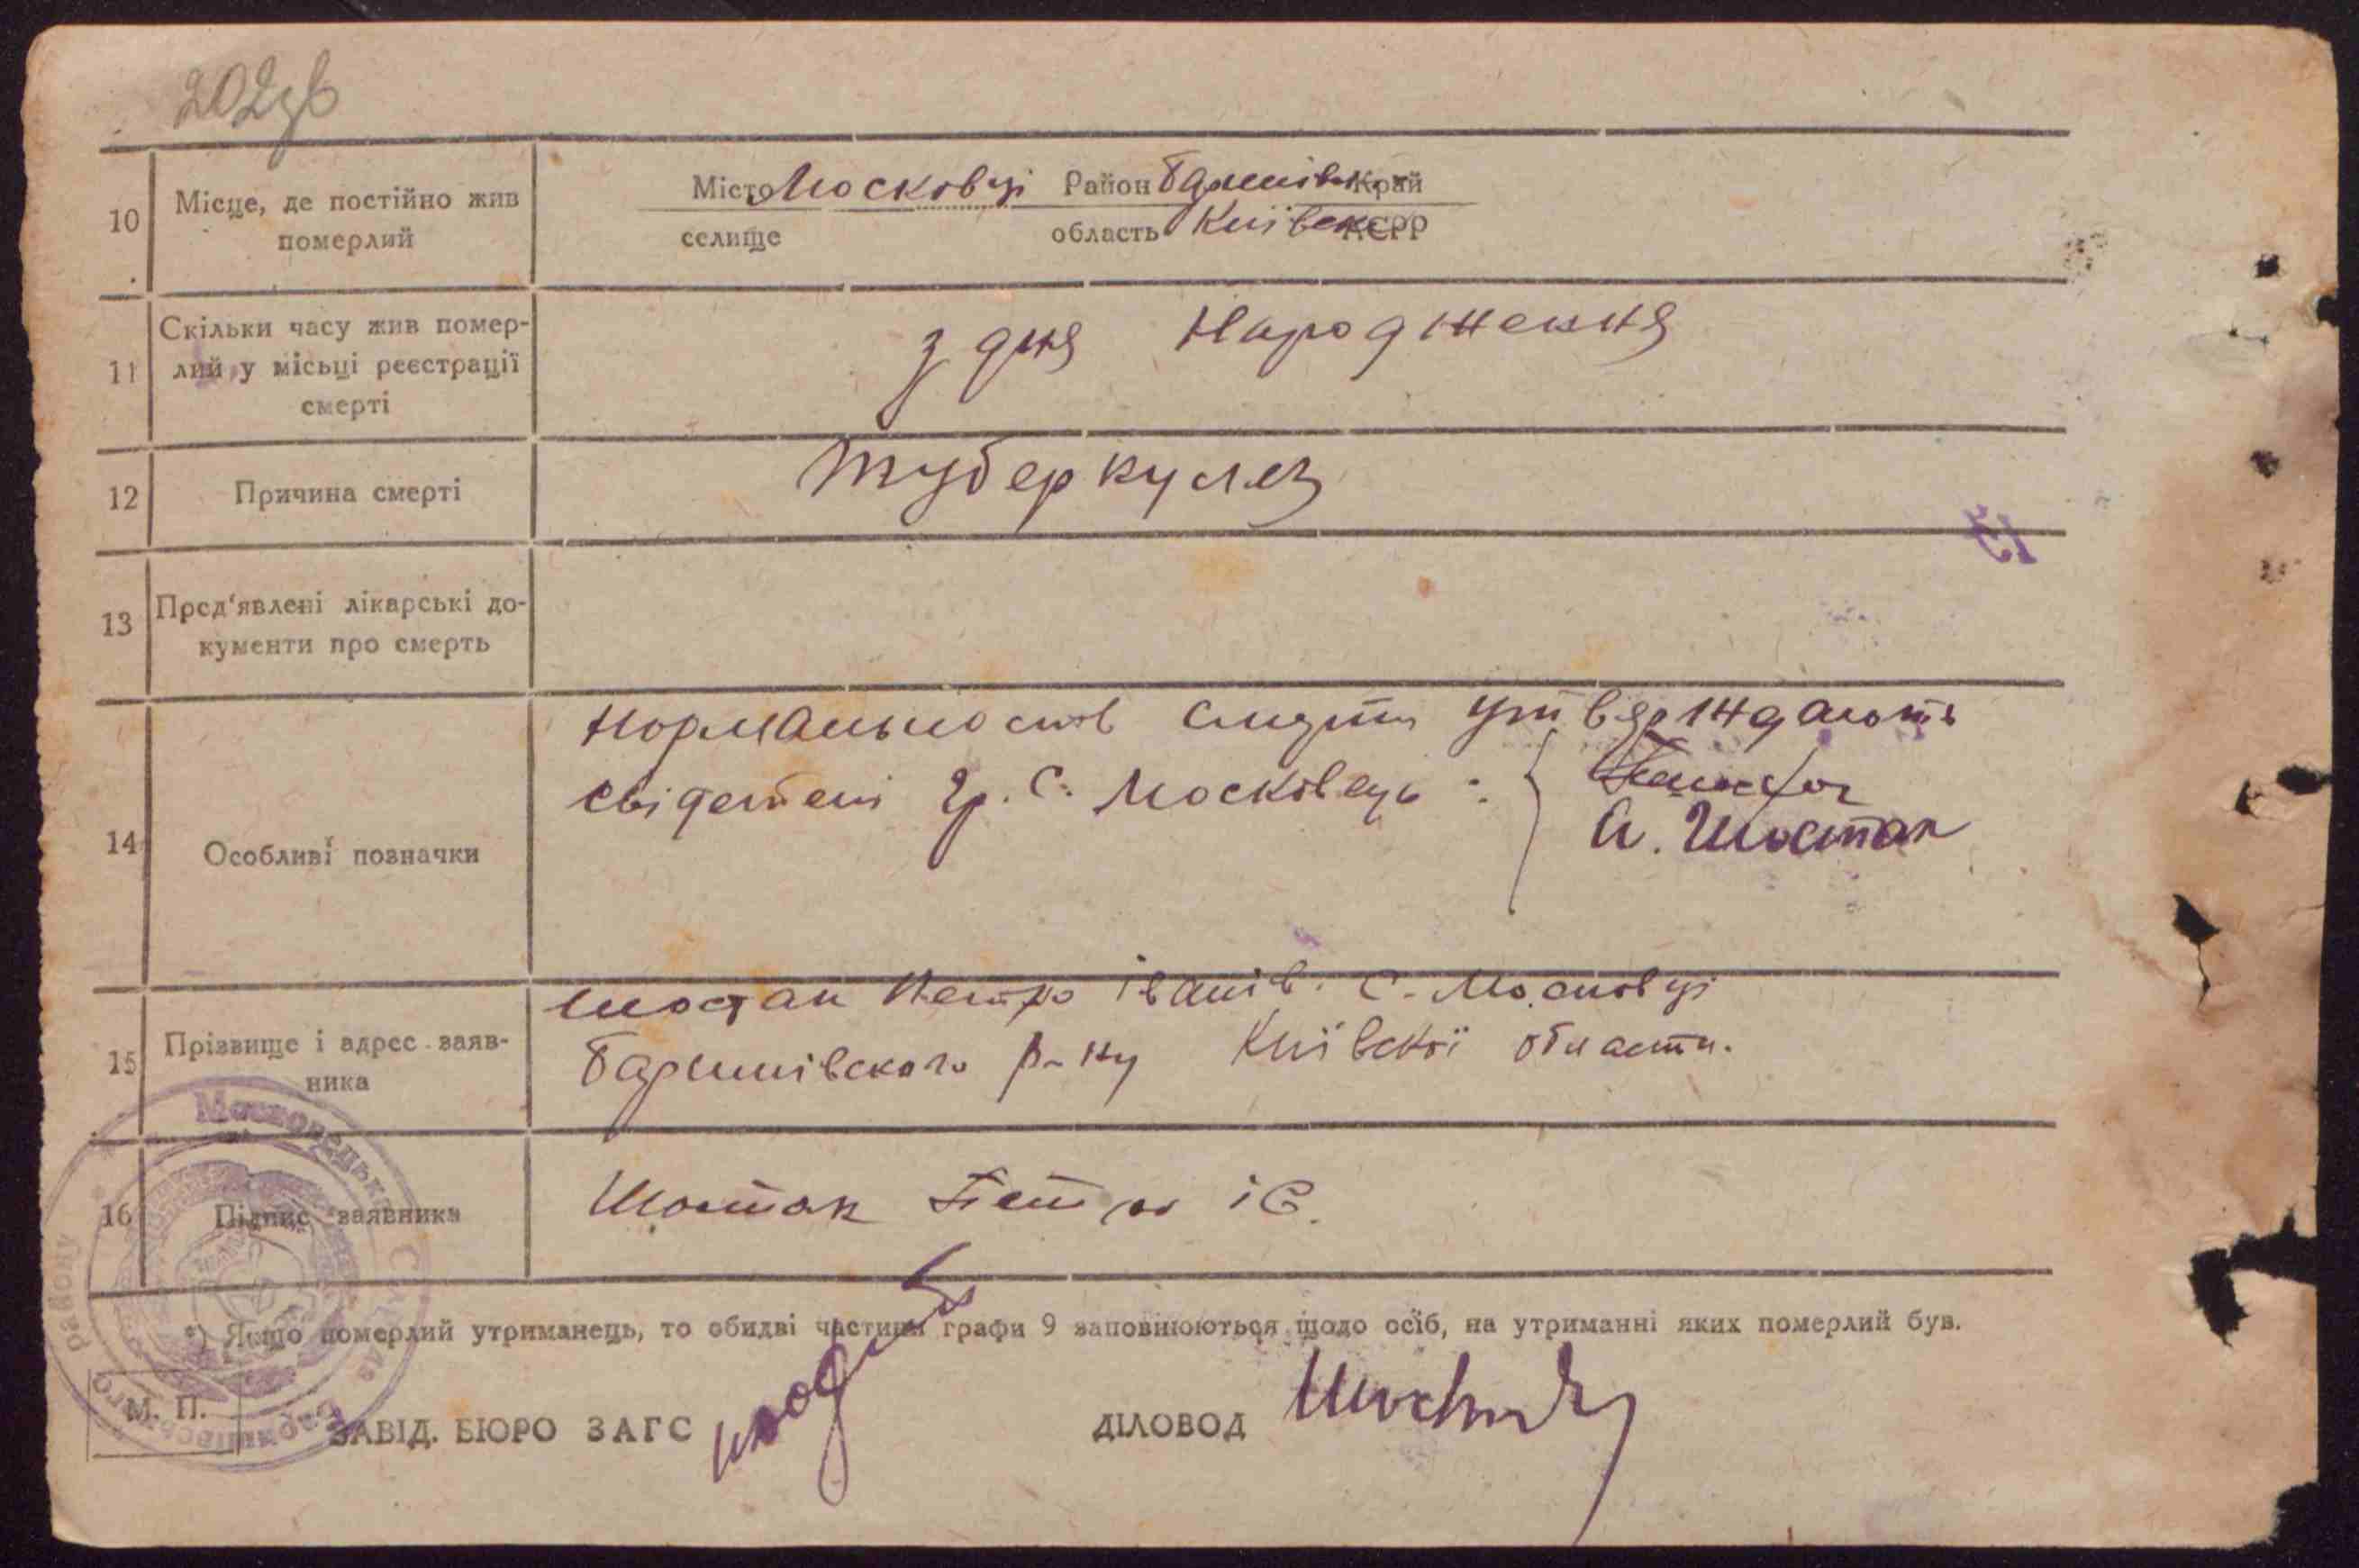 202зв
10 Місце, де постійно жив померлий
Місто Московці Район Баришівськ Край
селище область Київська АСРР
11 Скільки часу жив помер-
лий у місці реєстрації
смерті
з дня Народження
12 Причина смерті
Туберкулез
13 Пред'явлені лікарські до-
кументи про смерть
14 Особливі позначки
Нормальность смерти утвєрждають
свідетелі гр. С. Московець :
А. Шостак
15 Прізвище і адрес заяв-
ника
Шостак Петро Іванів. С. Московці
Баришівского р-ну Київскої области.
16 Підпис заявника
Шостак Петро і С.
*) Якщо померлий утриманець, то обидві частини графи 9 заповнюються щодо осіб, на утриманні яких померлий був.
М. П.
ЗАВІД. БЮРО ЗАГС
ДІЛОВОД
Московецька Сільрада Баришівського району